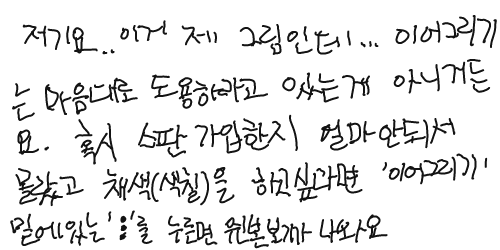 저기요..이거 제 그림인데... 이어그리기
는 마음대로 도용하라고 있는게 아니거든
요. 혹시 스판가입한지 얼마안되서
몰랐고 채색(색칠)을 하고싶다면 '이어그리기'
밑에있는'⋮'를 누르면 원본보기가 나와요